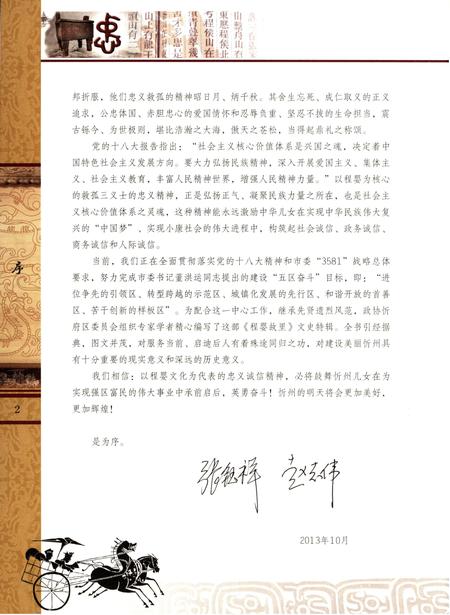 邦折服，他们忠义救孤的精神昭日月、炳千秋。其舍生忘死、成仁取义的正义
追求，公忠体国、赤胆忠心的爱国情怀和忍辱负重、坚忍不拔的生命担当，震
古铄今、为世极则，堪比浩瀚之大海，傲天之苍松，当得起鼎礼之称颂。
党的十八大报告指出：“社会主义核心价值体系是兴国之魂，决定着中
国特色社会主义发展方向。要大力弘扬民族精神，深入开展爱国主义、集体主
义、社会主义教育，丰富人民精神世界，增强人民精神力量。”以程婴为核心
的救孤三义士的忠义精神，正是弘扬正气、凝聚民族力量之所在，也是社会主
义核心价值体系之灵魂，这种精神能永远激励中华儿女在实现中华民族伟大复
兴的“中国梦”、实现小康社会的伟大进程中，构筑起社会诚信、政务诚信、
商务诚信和人际诚信。
当前，我们正在全面贯彻落实党的十八大精神和市委“3581”战略总体
要求，努力完成市委书记董洪运同志提出的建设“五区奋斗”目标，即：“进
位争先的引领区、转型跨越的示范区、城镇化发展的先行区、和谐开放的首善
区、苦干创新的样板区”。为配合这一中心工作，继承先贤遗烈风范，政协忻
府区委员会组织专家学者精心编写了这部《程婴故里》文史特辑。全书引经据
典，图文并茂，对服务当前、启迪后人有着殊途同归之功，对建设美丽忻州具
有十分重要的现实意义和深远的历史意义。
我们相信：以程婴文化为代表的忠义诚信精神，必将鼓舞忻州儿女在为
实现强区富民的伟大事业中承前启后，英勇奋斗！忻州的明天将会更加美好，
更加辉煌！
是为序。
张钰祥
2013年10月
序
2
忠